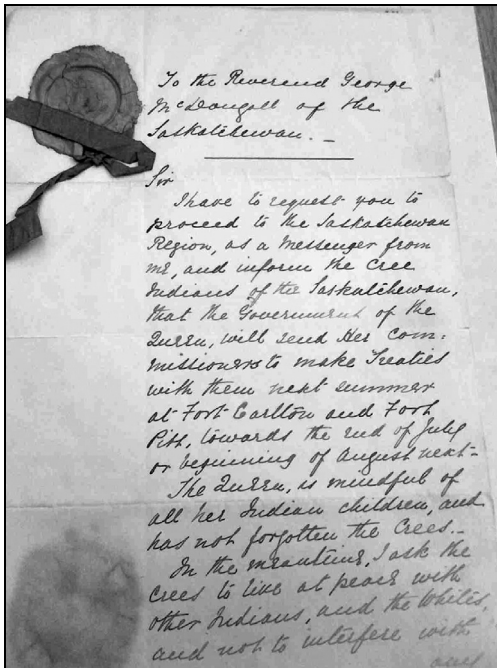 To the Reverend George
McDougall of the
Saskatchewan. _
Sir
I have to request you to
proceed to the Saskatchewan
Region, as a Messenger from
me, and inform the Cree
Indians of the Saskatchewan,
that the Government of the
Queen, will send Her Com:
missioners to make Treaties
with them next summer
at Fort Carlton and Fort
Pitt, towards the end of July
or beginning of August next -
The Queen, is mindful of
all her Indian children, and
has not forgotten the Crees. _
In the meantime, I ask the
Crees to live at peace with
other Indians, and the Whites,
and not to interfere with
any